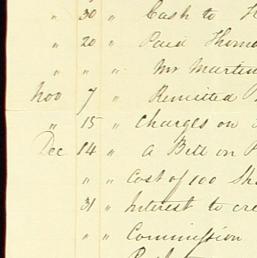 " 30 " Cash to
" 20 " Paid Thom
" " " Mr Martin
Nov 7 " Remitted
" 15 " Charges on
Dec 14 " a Bill on
" " Cost of 100 Sh
31 " Interest to cre
" " Commission